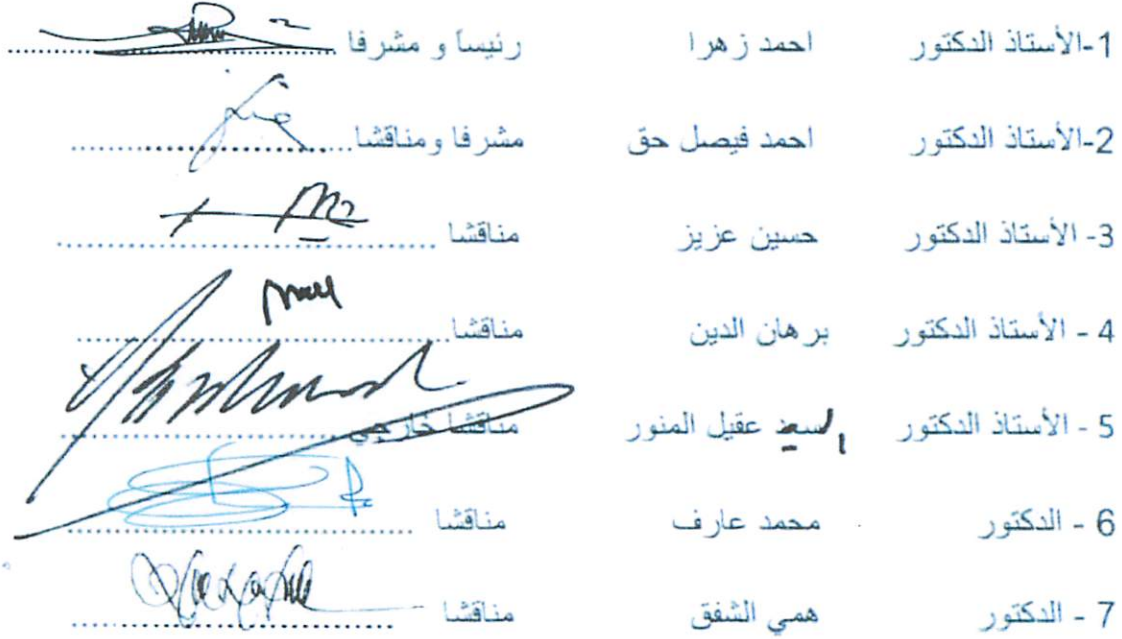 1-الأستاذ الدكتور احمد زهرا رئيساً و مشرفا
2-الأستاذ الدكتور احمد فيصل حق مشرفا ومناقشا
3- الأستاذ الدكتور حسين عزيز مناقشا
4 - الأستاذ الدكتور برهان الدين مناقشا
5 - الأستاذ الدكتور السيد عقيل المنور مناقشا خارجي
6 - الدكتور محمد عارف مناقشا
7 - الدكتور همي الشفق مناقشا